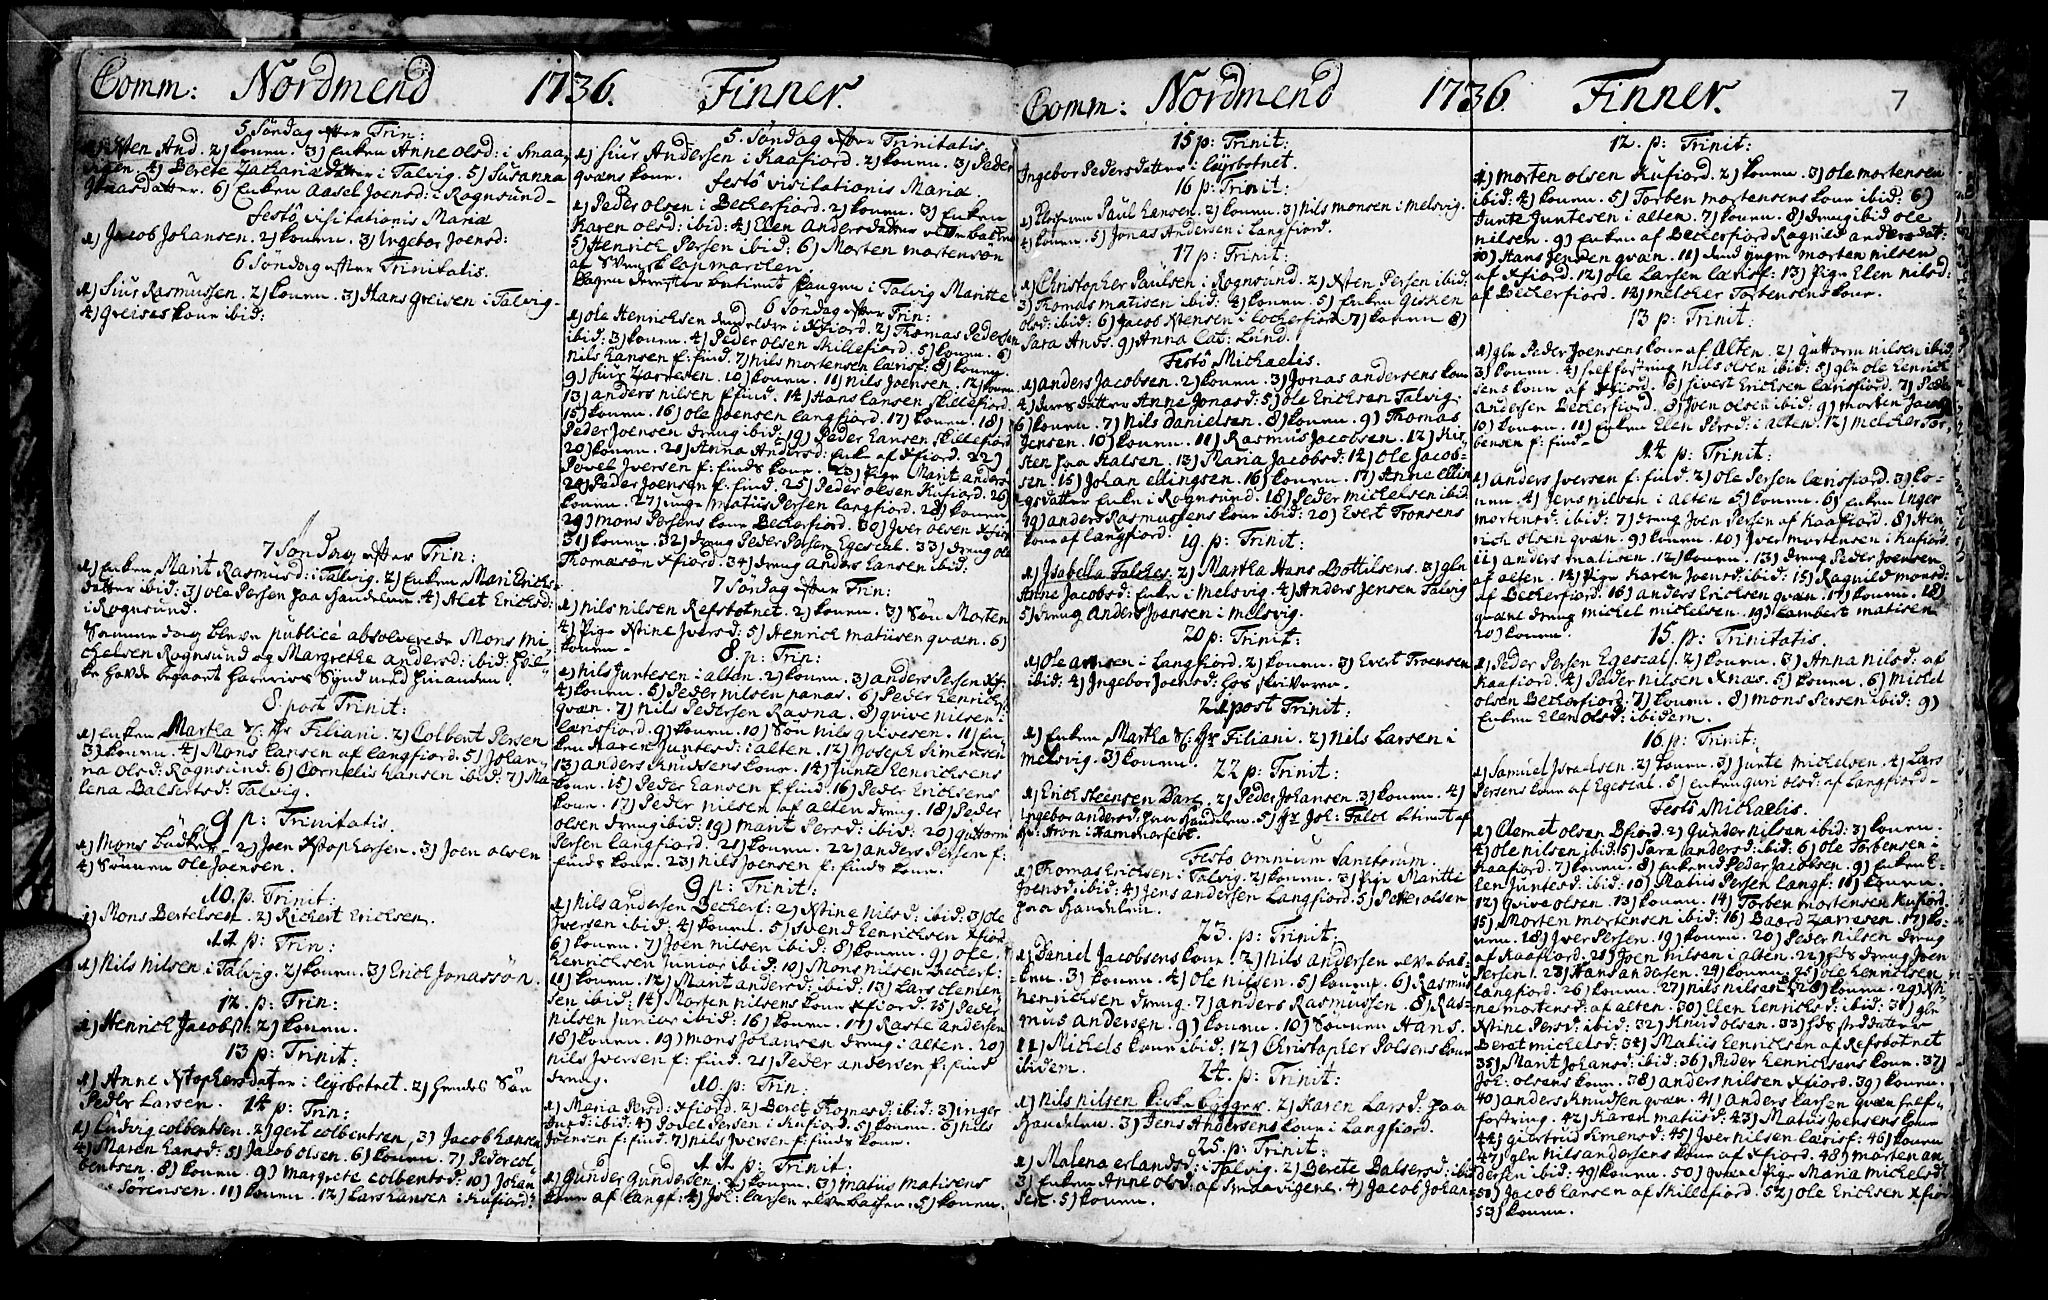 Comm: Nordmend 1736.
5 Söndag efter Trin:
1) Xsten And. 2) konen. 3) Enken Anne Olsd: i Smaa,
vigen. 4) Berete Zachariædatter i Talvig. 5) Susanna
Jonasdatter. 6) Enken Aasel Joensd: i Rognsund-
Festô visitationis Mariæ
1) Jacob Johansen. 2) konen. 3) Ingebor Joensd:
6 Söndag efter Trinitatis.
1) Siur Rasmussen. 2) konen. 3) Hans Greisen i Talvig.
4) Greises kone ibid:
7 Söndag efter Trin:
1) Enken Marit Rasmusd: i Talvig. 2) Enken Mari Erichs-
datter ibid: 3) Ole Persen paa Handelen. 4) Alet Ericksd:
i Rognsund.
Samme dag bleve publicè absolverede Mons Mi-
chelsen Rognsund og Margrethe Andersd: ibid: hvil-
ke havde begaaet Horeries Synd med hinanden.
8. post Trinit:
1) Enken Martha Sl. Hr Filiani. 2) Colbent Persen
3) konen. 4) Mons Hansen af Langfiord. 5) Johan-
na Olsd: Rognsund: 6) Cornelis Hansen ibid: 7) Ma-
lena Baltsersd: Talvig.
9 p: Trinitatis.
1) Mons Bödker. 2) Joen Xstophersen. 3) Joen Olsen
4) Sönnen Ole Joensen.
10. p: Trinit:
1) Mons Bertelsen. 2) Richert Ericksen.
11 p: Trin:
1) Nils Nilsen i Talvig. 2) konen. 3) Erich Jonassön.
12. p: Trin:
1) Henrich Jacobs: 2) konen.
13 p: Trinit:
1) Anne Xstophersdatter i Leyrbotnet. 2) Hendes Sön
Peder Larsen.
14 p: Trin:
1) Ludvig Colbentsen. 2) Gert Colbentsen, 3) Jacob Hansen
4) Maren Hansd: 5) Jacob Olsen. 6) konen. 7) Peder Col-
bentsen. 8) konen. 9) Margrete Colbentsd: 10) Johan-
Sörensen. 11) konen. 12) Lars Hansen i Kufiord:
Finner.
5. Söndag efter Trinitatis:
1) Siur Andersen i Kaafiord. 2) konen. 3) Peder
qvæns kone.
Festô visitationis Mariæ
1) Peder Olsen i Beckerfiord. 2) konen. 3) Enken
Karen Olsd: ibid: 4) Elen Andersdatter Elvebacken
5) Henrich Persen ibid: 6) Morten Mortensön
af Svensk Lapmarchen.
6 Söndag efter Trin:
1) Ole Henrichsen den eldre i Xfiord. 2) Thomas Pedersen
ibid: 3) konen. 4) Peder Olsen Skillefiord. 5) konen. 6)
Nils Hansen f: find. 7) Nils Mortensen Lærisf: 8) konen.
9) Siur Zarresen. 10) konen. 11) Nils Joensen. 12) konen
13) Anders Nilsen f: find. 14) Hans Hansen Skillefiord.
15) konen. 16) Ole Joensen Langfiord. 17) konen. 18)
Peder Joensen dreng ibid: 19) Peder Hansen Skillefiord
20) konen. 21) Anna Andersd: Enke af Xfiord. 22)
Povel Iversen f: finds kone. 23) Pige Marit Anders-
24) Peder Joensen f: find. 25) Peder Olsen Kufiord. 26
konen. 27) unge Matiis Persen Langfiord. 28) konen.
29) Mons Persens kone Beckerfiord. 30) Iver Olsen Xfiord
31) konen. 32) dreng Peder Persen Egescal. 33) dreng Ole
Thomasön Xfiord. 34) dreng Anders Hansen ibid.
7 Söndag efter Trin:
1) Nils Nilsen Refsbotnet. 2) konen. 3) Sön Morten
4) Pige Xstine Iversd: 5) Henrich Matiisen qvæn. 6)
konen-
8. p: Trin:
1) Nils Juntesen i Alten. 2) konen. 3) Anders Persen Xf:
4) konen. 5) Peder Nilsen panas. 6) Peder Henrichs:
qvæn. 7) Nils Pedersen Ravna. 8) Qvive Nilsen
Lærisfiord. 9) konen. 10) Sön Nils Qvivesen. 11) En-
ken Karen Juntesd: i Alten. 12) Joseph Simensen
13) Anders Knudsens kone. 14) Junte Henricksens
kone. 15) Peder Hansen f: find 16) Peder Ericksens
kone. 17) Peder Nilsen af Alten dreng. 18) Peder
Olsen dreng ibid: 19) Marit Persd: ibid: 20) Guttorm
Persen Langfiord. 21) konen. 22) Anders Persen f:
finds kone. 23) Nils Joensen f: finds kone.
9 p: Trinit:
1) Nils Andersen Beckerf: 2) Xstine Nilsd: ibid: 3) Ole
Iversen ibid: 4) konen. 5) Svend Henricksen Xfiord
6) konen. 7) Joen Nilsen ibid: 8) konen. 9) Ole
Henricksen Junior ibid: 10) Mons Nilsen Beckerf:
11) konen. 12) Marit Andersd: ibid: 13) Lars Clemen-
sen ibid: 14) Morten Nilsens kone Xfiord. 15) Peder
Nilsen Junior ibid: 16) konen. 17) Raste Andersen
18) konen. 19) Mons Johansen dreng i Alten. 20)
Nils Iversen f: find. 21) Peder Andersen f: find
dreng.
10. p: Trin:
1) Maria Persd: Xfiord. 2) Beret Thomesd: ibid: 3) Inger
ibid: 4) Povel Persen i Kufiord. 5) konen. 6) Nils
Joensen f: find. 7) Nils Iversen f: finds kone.
11 p: Trinit:
1) Gunder Gundersen. 2) konen. 3) Matiis Matisens
kone af Langf: 4) Joh: Larsen Elvebachen. 5) konen.
Comm: Nordmend 1736.
15 p: Trinit:
Ingebor Pedersdatter i Leyrbotnet.
16 p: Trinit:
1) Klocheren Paul Hansen. 2) konen. 3) Nils Monsen i Melsvig.
4) konen. 5) Jonas Andersen i Langfiord.
17 p: Trinit:
1) Christopher Paulsen i Rognsund. 2) Xsten Persen ibid:
3) Thomas Matisen ibid: 4) konen. 5) Enken Gisken
Olsd: ibid: 6) Jacob Xstensen i Lockerfiord 7) konen 8)
Sara Ands. 9) Anna Cat: Lund.
Festô Michaelis.
1) Anders Jacobsen. 2) konen. 3) Jonas Andersens kone
4) Deres datter Anne Jonasd: 5) Ole Ericksen Talvig.
6) konen. 7) Nils Danielsen. 8) konen. 9) Thomas
Jensen. 10) konen. 11) Rasmus Jacobsen. 12) Kir-
sten paa Halsen. 13) Maria Jacobsd: 14) Ole Jacob-
sen. 15) Johan Ellingsen. 16) konen. 17) Anne Ellin-
gsdatter Enke i Rognsund. 18) Peder Michelsen ibid
19) Anders Rasmussens kone ibid: 20) Evert Tronsens
kone af Langfiord.
19. p: Trinit:
1) Isabella Falches. 2) Martha Hans Bottilsens. 3) gln
Anne Jacobsd: Enke i Melsvig. 4) Anders Jensen Talvig
5) dreng Anders Joensen i Melsvig.
20 p: Trinit:
1) Ole Arnsen i Langfiord. 2) konen. 3) Evert Troensen
ibid: 4) Ingebor Joensd: hos skriveren.
21 post Trinit:
1) Enken Martha Sl: Hr Filiani. 2) Nils Larsen i
Melsvig. 3) konen.
22 p: Trinit:
1) Erich Steensen Barc. 2) Peder Johansen. 3) konen. 4)
Ingebor Andersd: paa Handelen. 5) Hr Joh: Falck betient af
Hr Aron i Hamerfest.
Festo omnium Sanctorum.
1) Thomas Ericksen i Talvig. 2) konen. 3) Pige Maritte
Joensd: ibid: 4) Jens Andersen Langfiord. 5) Peter Olsen
paa Handelen.
23. p: Trinit:
1) Daniel Jacobsens kone. 2) Nils Andersen Elvebac-
ken. 3) konen. 4) Ole Nilsen. 5) konen. 6) Rasmus
Henricksen dreng. 7) Anders Rasmussen. 8) Ras-
mus Andersen. 9) konen. 10) Sönnen Hans.
11) Michels kone ibid: 12) Christopher Polsens kone
ibidem.
24. p: Trinit:
1) Nils Nilsen Kirkebygger. 2) Karen Larsd: paa
Handelen. 3) Jens Andersens kone i Langfiord.
25. p: Trinit:
1) Malena Erlandsd: i Talvig. 2) Berete Balsersd: ibid
3) Enken Anne Olsd: af Smaavigene. 4) Jacob Johan-
sen. 5) konen.
Finner. 7
12. p: Trinit:
1) Morten Olsen Kufiord. 2) konen. 3) Ole Mortensen
ibid: 4) konen. 5) Torben Mortensens kone ibid: 6)
Junte Juntesen i Alten. 7) konen. 8) Dreng ibid Ole
Nilsen. 9) Enken af Beckerfiord Ragnild Andersdat:
10) Hans qvæn. 11) Morten Nilsen
af Xfiord. 12) Ole Larsen Lærisf: 13) Pige Elen Nilsd:
af Beckerfiord. 14) Melcher Torbensens kone.
13 p: Trinit:
1) gln Peder Joensens kone af Alten. 2) Guttorm Nilsen ibid
3) konen. 4) Nils Olsen ibid: 5) gln Ole Henrick
sens kone af Xfiord. 6) Sivert Ericksen Lærisfiord. 7) Peder
Andersen Beckerfiord. 8) Joen Olsen ibid: 9) Morten Jacobs
10) konen. 11) Enken Elen Persd: i Alten. 12) Melcher Tor-
bensen f: find-
14 p: Trinit:
1) Anders Iversen f: find 2) Ole Persen Lærisfiord. 3) ko-
nen. 4) Jens Nilsen i Alten 5) konen. 6) Enken Inger
Mortensd: ibid: 7) dreng Joen Persen af Kaafiord. 8) Hen-
rich Olsen qvæn. 9) konen. 10) Iver Mortensen i Kufiord.
11) Anders Matisen. 12) konen. 13) Dreng Peder Joensen
af Alten. 14) Pige Karen Joensd: ibid: 15) Ragnild Monsd:
af Beckerfiord. 16) Anders Ericksen qvæn. 17) konen. 18)
qvæne dreng Michel Michelsen. 19) Lambert Matisen
20) konen.
15. p: Trinitatis.
1) Peder Persen Egescal. 2) konen. 3) Anna Nilsd: af
Kaafiord. 4) Peder Nilsen Xnas. 5) konen. 6) Michel
Olsen Beckerfiord. 7) konen. 8) Mons Persen ibid: 9)
Enken Elen Olsd: ibidem.
16. p: Trinit:
1) Samuel Israelsen. 2) konen. 3) Junte Michelsen. 4) Lars
Persens kone af Egescal. 5) Enken Guri Olsd: af Langfiord-
Festô Michaelis.
1) Clemet Olsen Bfiord. 2) Gunder Nilsen ibid: 3) konen.
4) Ole Nilsen ibid: 5) Sara Andersd: ibid: 6) Ole Torbensen i
Kaafiord. 7) konen. 8) Peder Jacobsen. 9) Enken E-
len Juntesd: ibid: 10) Matiis Persen Langf: 11) konen.
12) Qvive Olsen. 13) konen. 14) Torben Mortensen Kufiord.
15) Morten Mortensen ibid: 16) Baard Zarresen. 17) ko-
nen. 18) Iver Persen. 19) konen. 20) Peder Nilsen dreng
af Kaafiord. 21) Joen Nilsen i Alten. 22) dreng Joen
Persen. 23) Hans Andersen. 24) konen. 25) Ole Henricksen
Langfiord. 26) konen. 27) Nils Nilsen. 28) konen. 29) Xsti-
ne Mortensd: af Alten. 30) Elen Henricksd: ibid: 31) gln
Xstine Persd: ibid: 32) Knud Olsen. 33)
Beret Michelsd: 34) Matiis Henricksen af Refsbotnet
35) Marit Johansd: ibid: 36) Peder Henricksens kone. 37)
Joh: Olsens kone. 38) Anders Nilsen Xfiord. 39) konen.
40) Anders Knudsen qvæn. 41) Anders Larsen qvæn
fostring. 42) Karen Matisd: 43) Matiis Joensens kone
44) Giertrud Simensd: 45) Iver Nilsen Lærisf: 46) konen
47) gln Nils Andersens kone af Xfiord. 48) Morten An-
dersen ibid: 49) konen. 50) qvæne Pige Maria Michelsd:
51) Jacob Hansen af Skillefiord. 52) Ole Ericksen Xfiord
53) konen.